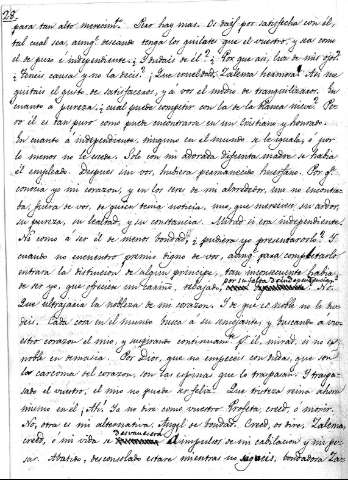 28.
para tan alto merecimto. Pero hay mas. Os dais por satisfecha con él,
tal cual sea, aunqe descanse tenga los quilates que el vuestro, y sea como
el de puro é independiente. ¿Y dudais de él? ¿Por que asi, luz de mis ojos?
¿Teneis causa y no la decis? ¡Que crueldad! ¡Zalema hermosa! Asi me
quitais el gusto de satisfaceros, y á vos el medio de tranquilizaros. En
cuanto á pureza ¿cual puede competir con la de la blanca nieve? Pe-
ro él es tan puro como puede encontrarse en un Cristiano y honrado.
En cuanto á independiente, ninguno en el mundo a le iguala, ó por
lo menos no le escede. Solo con mi adorada difunta madre se habia
él empleado. Despues sin vos, hubiera permanecido huerfano. Porqe
conocia yo mi corazon, y en los seres de mi alrrededor, uno no encontra-
ba, fuera de vos, de quien tenia noticia, que mereciese su ardor,
su pureza, su lealtad, y su constancia. Mirad si era independiente.
No como á ser el de menos bondad, ¿pudiera yo presentarlo? Y
cuando no encuentro premio digno de vos, aunqe para completarlo
entrara la distincion de algun principe, tan inconsecuente habia
de ser yo, que ofreciera un cariño, rebajado, por su falta de independencia? No.
Que ultrajaria la nobleza de mi corazon. Y de que es noble no lo du-
deis. Cada cosa en el mundo busca a su semejante, y buscando a vu-
estro corazon el mio, y suspirando continuamte pr él, mirad, si no es
noble en demasia. Por Dios, que no empeceis con dudas, que son
los carcoma del corazon, son las espinas que lo traspasan. Y traspa-
sado el vuestro, el mio no puede ser feliz. Que tristeza reina ahora
mismo en él. ¡Ah! Yo no diré como vuestro Profeta, creed, ó morir.
No, otra es mi alternativa, Angel de bondad. Creed, os dire, Zalema,
creed, ó mi vida se desvanecerá á impulsos de mi cabilacion y mi pe-
sar. Abatido, desconsolado estaré mientras no
bondadosa Za-